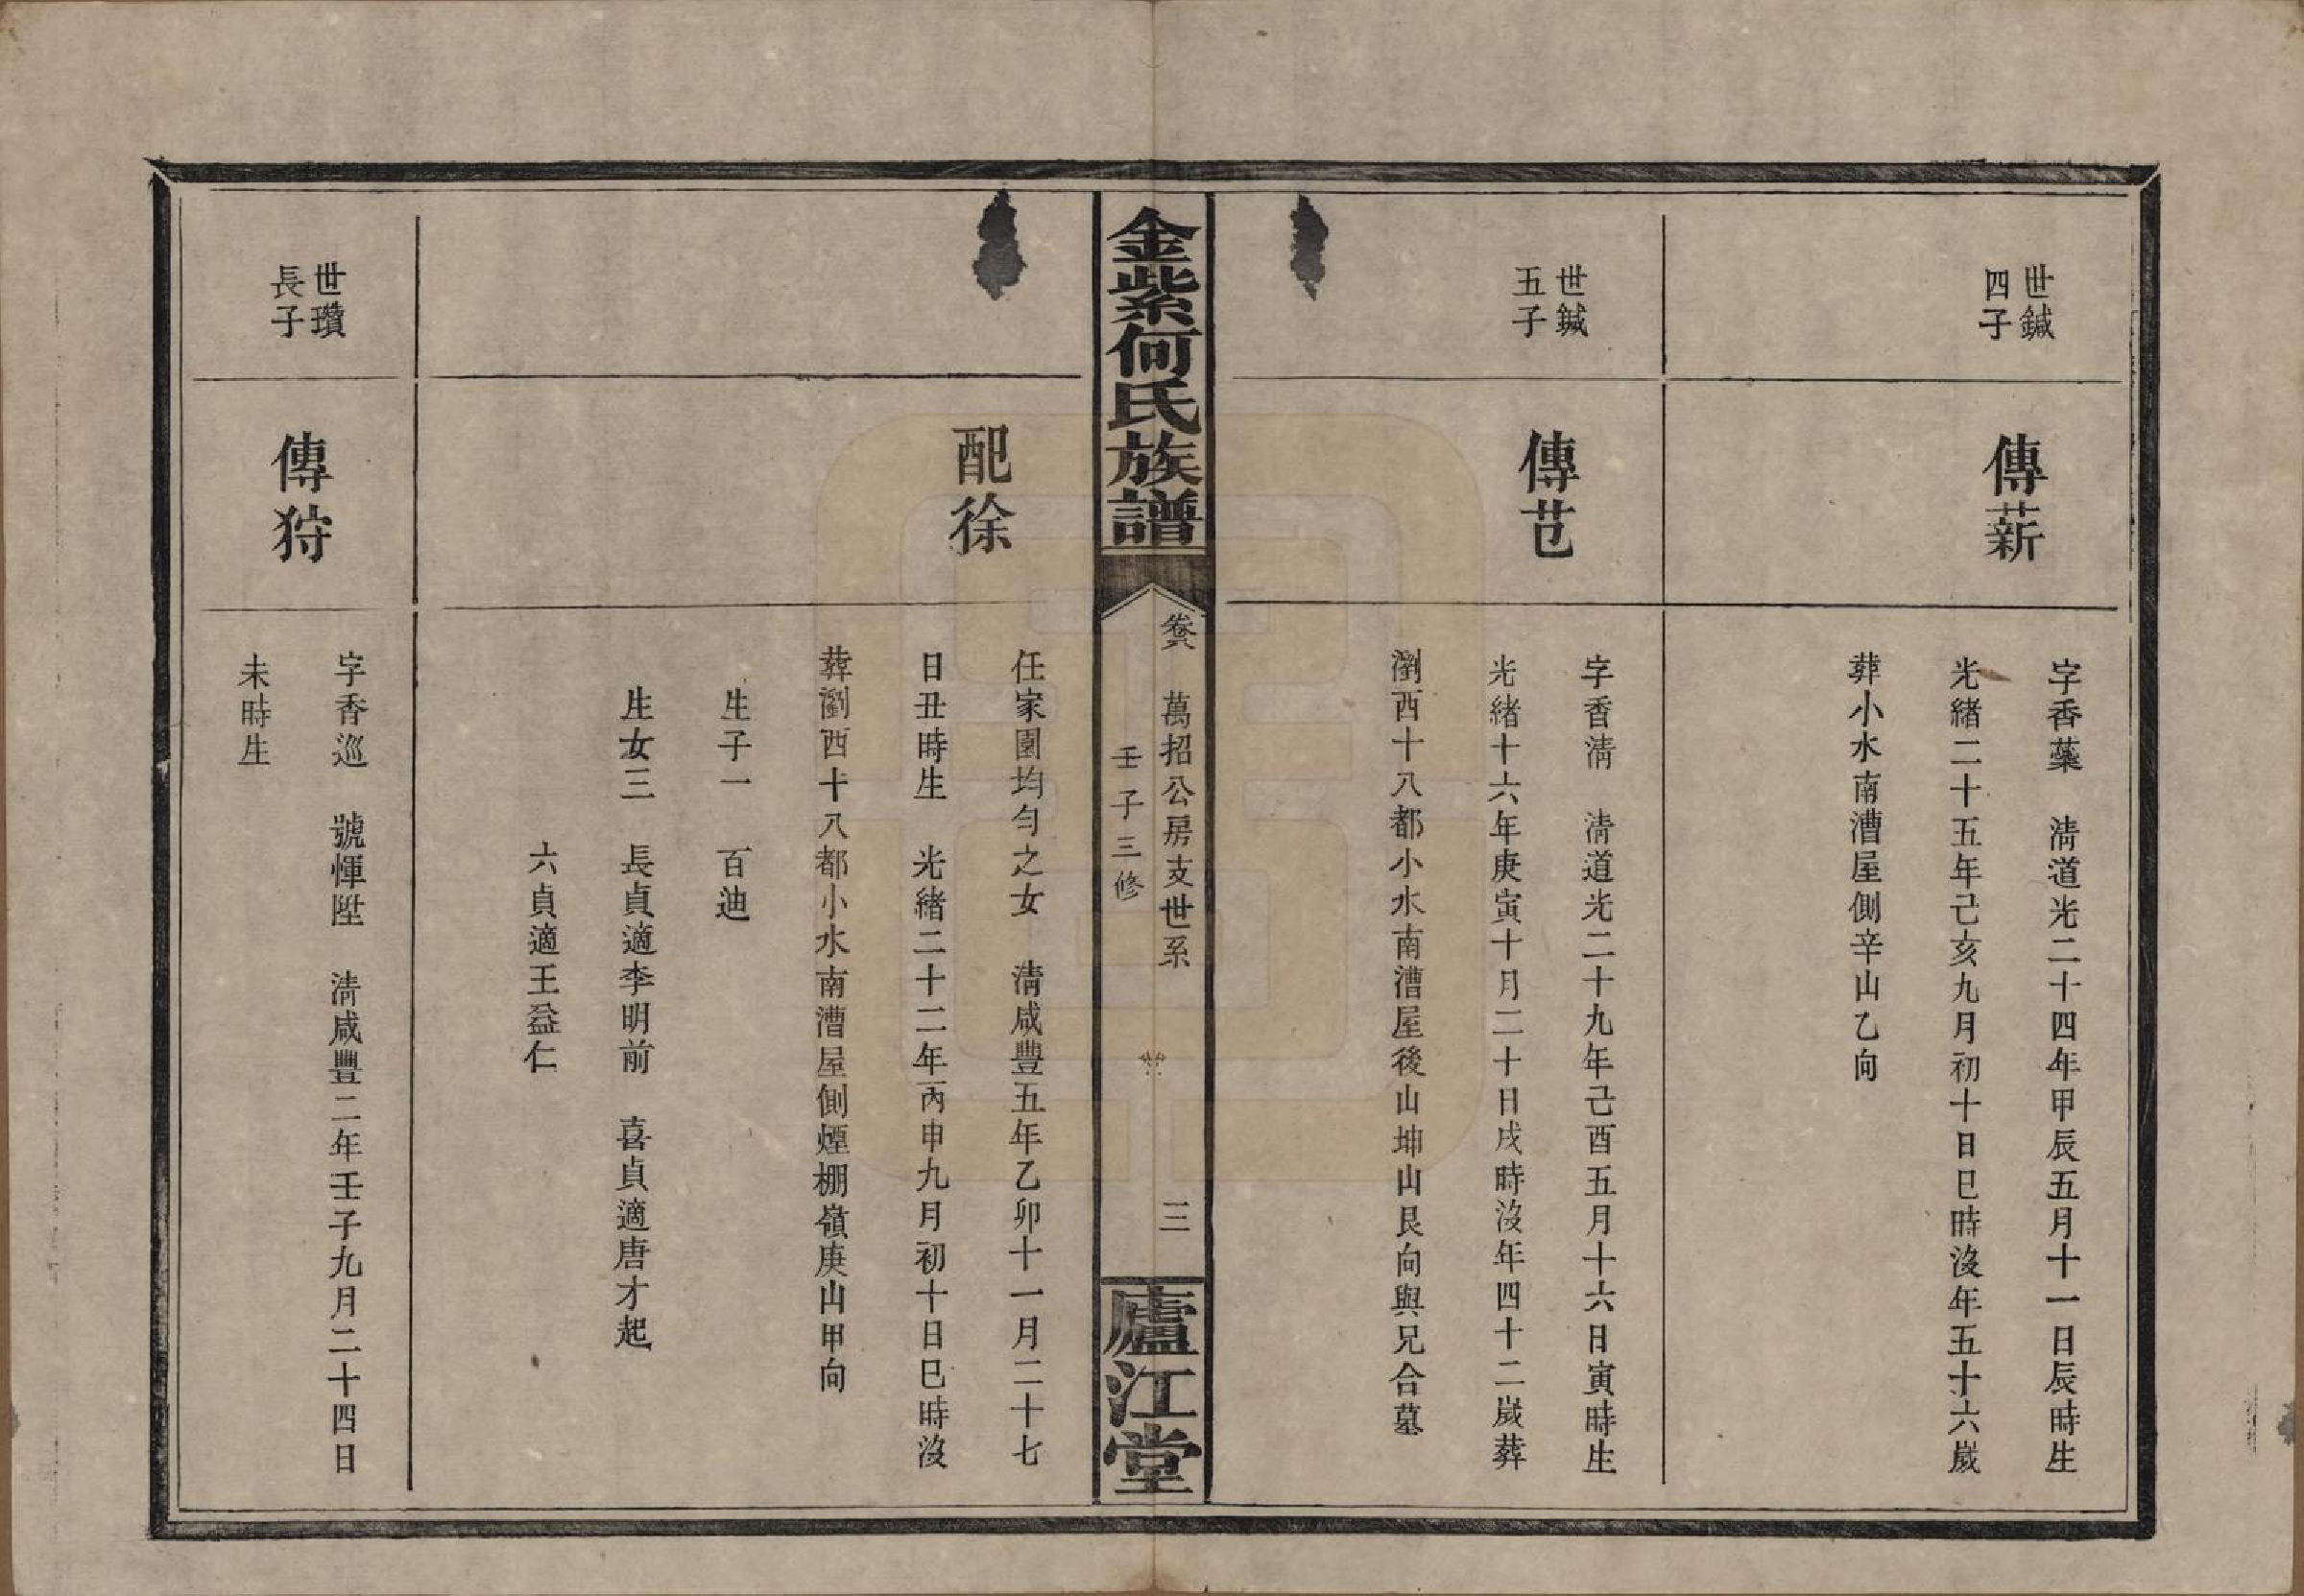 世鍼
四子
傳薪
字香蘂　淸道光二十四年甲辰五月十一日辰時生
光緒二十五年己亥九月初十日巳時沒年五十六歲
葬小水南漕屋側辛山乙向
世鍼
五子
傳芑
字香淸　淸道光二十九年己酉五月十六日寅時生
光緒十六年庚寅十月二十日戌時沒年四十二歲葬
瀏西十八都小水南漕屋後山坤山艮向與兄合墓
金紫何氏族譜
卷六　萬招公房支世系　三
壬子三修
廬江堂
配徐
任家園均勻之女　淸咸豐五年乙卯十一月二十七
日丑時生　光緒二十二年丙申九月初十日巳時沒
葬瀏西十八都小水南漕屋側煙棚嶺庚山甲向
生子一　百迪
生女三　長貞適李明前　喜貞適唐才起
六貞適王益仁
世瓚
長子
傳狩
字香巡　號惲陞　淸咸豐二年壬子九月二十四日
未時生